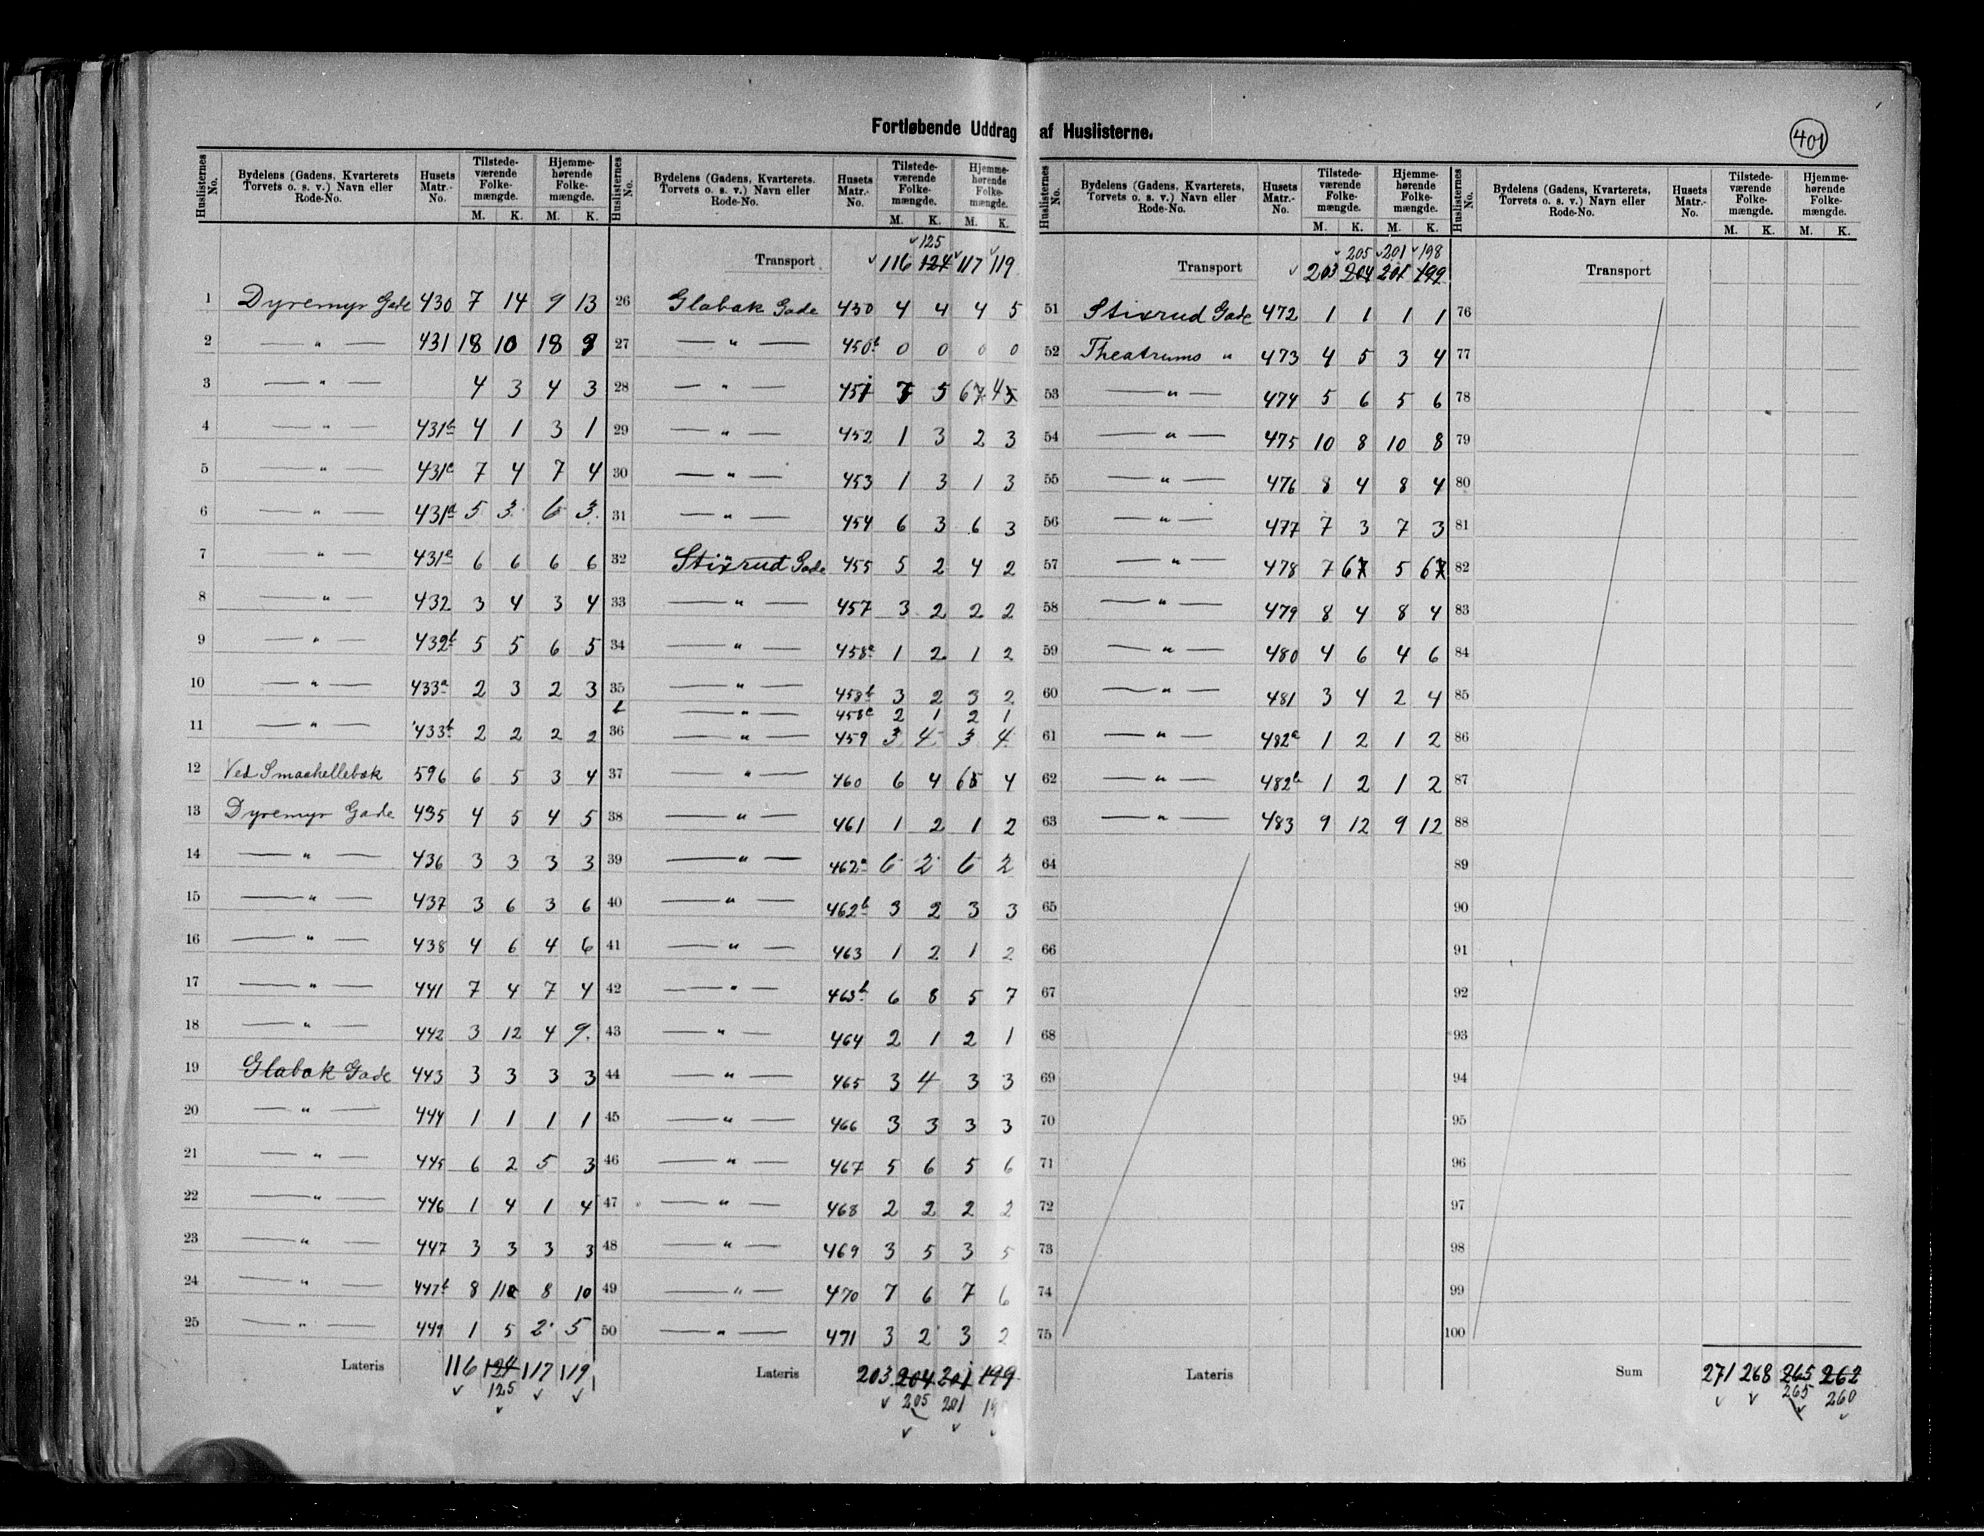 401
Fortløbende Uddrag af Huslisterne.
Huslisternes No. | Bydelens (Gadens, Kvarterets Torvets o. s. v.) Navn eller Rode-No. | Husets Matr.-No. | Tilstedeværende Folkemængde. M. K. | Hjemmehørende Folkemængde. M. K.
1 Dyremyr Gade 430 7 14 9 13
2 — " — 431 18 10 18 9
3 — " — 4 3 4 3
4 — " — 431b 4 1 3 1
5 — " — 431c 7 4 7 4
6 — " — 431d 5 3 6 3
7 — " — 431e 6 6 6 6
8 — " — 432 3 4 3 4
9 — " — 432b 5 5 6 5
10 — " — 433a 2 3 2 3
11 — " — 433b 2 2 2 2
12 Ved Smaahellebæk 596 6 5 3 4
13 Dyremyr Gade 435 4 5 4 5
14 — " — 436 3 3 3 3
15 — " — 437 3 6 3 6
16 — " — 438 4 6 4 6
17 — " — 441 7 4 7 4
18 — " — 442 3 12 4 9
19 Glabak Gade 443 3 3 3 3
20 — " — 444 1 1 1 1
21 — " — 445 6 2 5 3
22 — " — 446 1 4 1 4
23 — " — 447 3 3 3 3
24 — " — 447b 8 8 10
25 — " — 449 1 5 2 5
Lateris 116 124 117 119
125
Huslisternes No. | Bydelens (Gadens, Kvarterets. Torvets o. s. v.) Navn eller Rode-No. | Husets Matr.-No. | Tilstedeværende Folkemængde. M. K. | Hjemmehørende Folkemængde. M. K.
125
Transport 116 124 117 119
26 Glabak Gade 450 4 4 4 5
27 — " — 450b 0 0 0 0
28 — " — 451 7 5 67 45
29 — " — 452 1 3 2 3
30 — " — 453 1 3 1 3
31 — " — 454 6 3 6 3
32 Stixrud Gade 455 5 2 4 2
33 — " — 457 3 2 2 2
34 — " — 458a 1 2 1 2
35 — " — 458b 3 2 3 2
b — " — 458c 2 1 2 1
36 — " — 459 3 4 3 4
37 — " — 460 6 4 65 4
38 — " — 461 1 2 1 2
39 — " — 462a 6 2 6 2
40 — " — 462b 3 2 3 3
41 — " — 463 1 2 1 2
42 — " — 463b 6 8 5 7
43 — " — 464 2 1 2 1
44 — " — 465 3 4 3 3
45 — " — 466 3 3 3 3
46 — " — 467 5 6 5 6
47 — " — 468 2 2 2 2
48 — " — 469 3 5 3 5
49 — " — 470 7 6 7 6
50 — " — 471 3 2 3 2
Lateris 203 204 201 199
205 201
Huslisternes No. | Bydelens (Gadens, Kvarterets, Torvets o. s. v.) Navn eller Rode-No. | Husets Matr.-No. | Tilstedeværende Folkemængde. M. K. | Hjemmehørende Folkemængde. M. K.
205 201 198
Transport 203 204 201 199
51 Stixrud Gade 472 1 1 1 1
52 Theatrums " 473 4 5 3 4
53 — " — 474 5 6 5 6
54 — " — 475 10 8 10 8
55 — " — 476 8 4 8 4
56 — " — 477 7 3 7 3
57 — " — 478 7 67 5 67
58 — " — 479 8 4 8 4
59 — " — 480 4 6 4 6
60 — " — 481 3 4 2 4
61 — " — 482a 1 2 1 2
62 — " — 482b 1 2 1 2
63 — " — 483 9 12 9 12
64
65
66
67
68
69
70
71
72
73
74
75
Lateris
Huslisternes No. | Bydelens (Gadens, Kvarterets, Torvets o. s. v.) Navn eller Rode-No. | Husets Matr.-No. | Tilstedeværende Folkemængde. M. K. | Hjemmehørende Folkemængde. M. K.
Transport
76
77
78
79
80
81
82
83
84
85
86
87
88
89
90
91
92
93
94
95
96
97
98
99
100
Sum 271 268 265 262
265 260